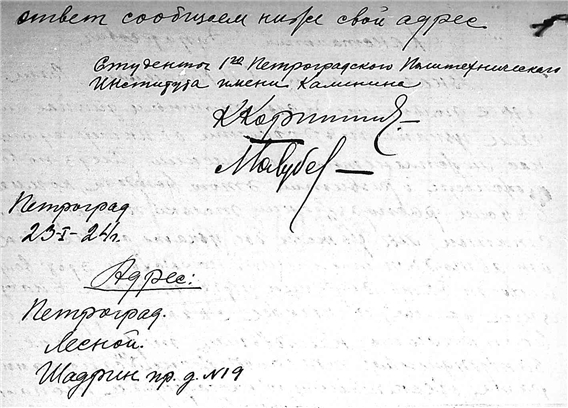 ответ сообщаем ниже свой адрес
Студенты 1го Петроградского Политехнического
Института имени Калинина
Петроград
23-I-24г.
Адрес:
Петроград.
Лесной.
Шадрин пр. д. №19